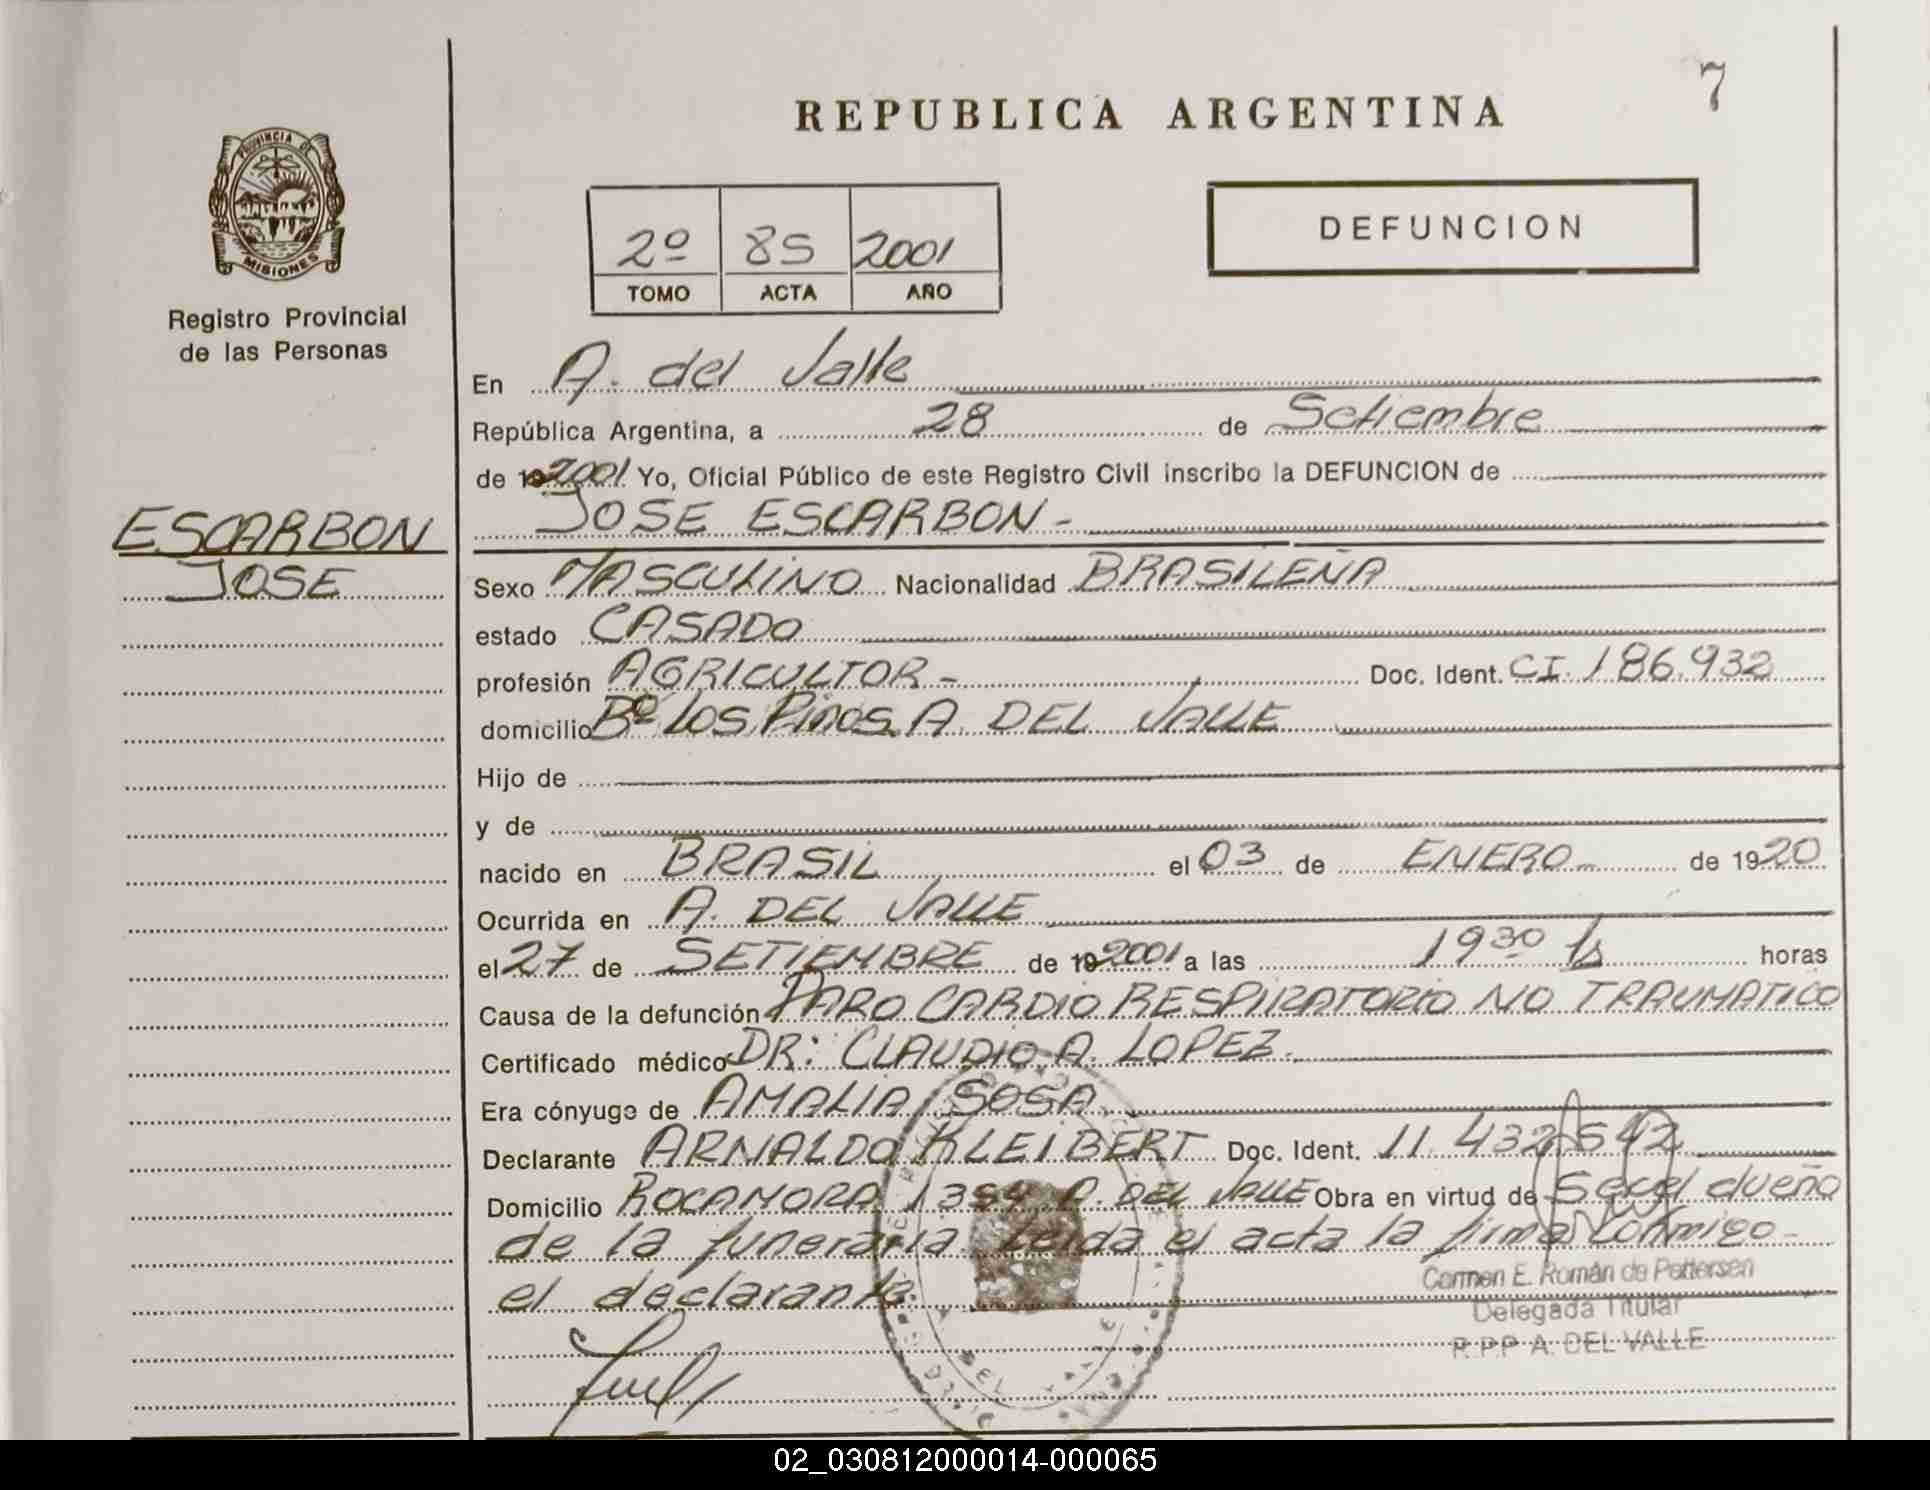 7
REPUBLICA ARGENTINA
PROVINCIA DE
MISIONES
Registro Provincial
de las Personas
2º 85 2001
TOMO ACTA AÑO
DEFUNCION
En A. del Valle
República Argentina, a 28 de Setiembre
de 192001 Yo, Oficial Público de este Registro Civil inscribo la DEFUNCION de
JOSE ESCARBON -
ESCARBON
JOSE
Sexo MASCULINO Nacionalidad BRASILEÑA
estado CASADO
profesión AGRICULTOR - Doc. Ident. CI. 186.932
domicilio Bº LOS PINOS. A. DEL VALLE
Hijo de
y de
nacido en BRASIL el 03 de ENERO - de 1920
Ocurrida en A. DEL VALLE
el 27 de SETIEMBRE de 192001 a las 19 30 hs horas
Causa de la defunción PARO CARDIO RESPIRATORIO NO TRAUMATICO
Certificado médico DR: CLAUDIO A. LOPEZ.
Era cónyuge de AMALIA SOSA
Declarante ARNALDO KLEIBERT Doc. Ident. 11.432.542
Domicilio ROCAMORA 1354 A. DEL VALLE Obra en virtud de Ser el dueño
de la funeraria. Leída el acta la firma conmigo -
el declarante.
Carmen E. Román de Pattersen
Delegada Titular
R.P.P A. DEL VALLE
DEL VALLE
02_030812000014-000065